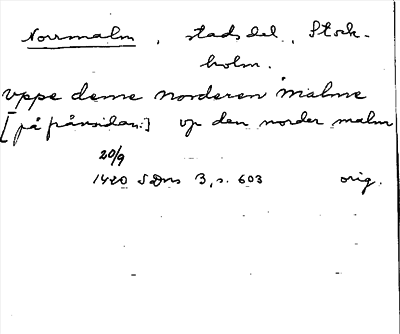 Norrmalm, stadsdel, Stock-
holm.
vppe deme norderen malme
[på frånsidan:] vp den norder malm
20/9
1420 SDns 3, s. 603 orig.